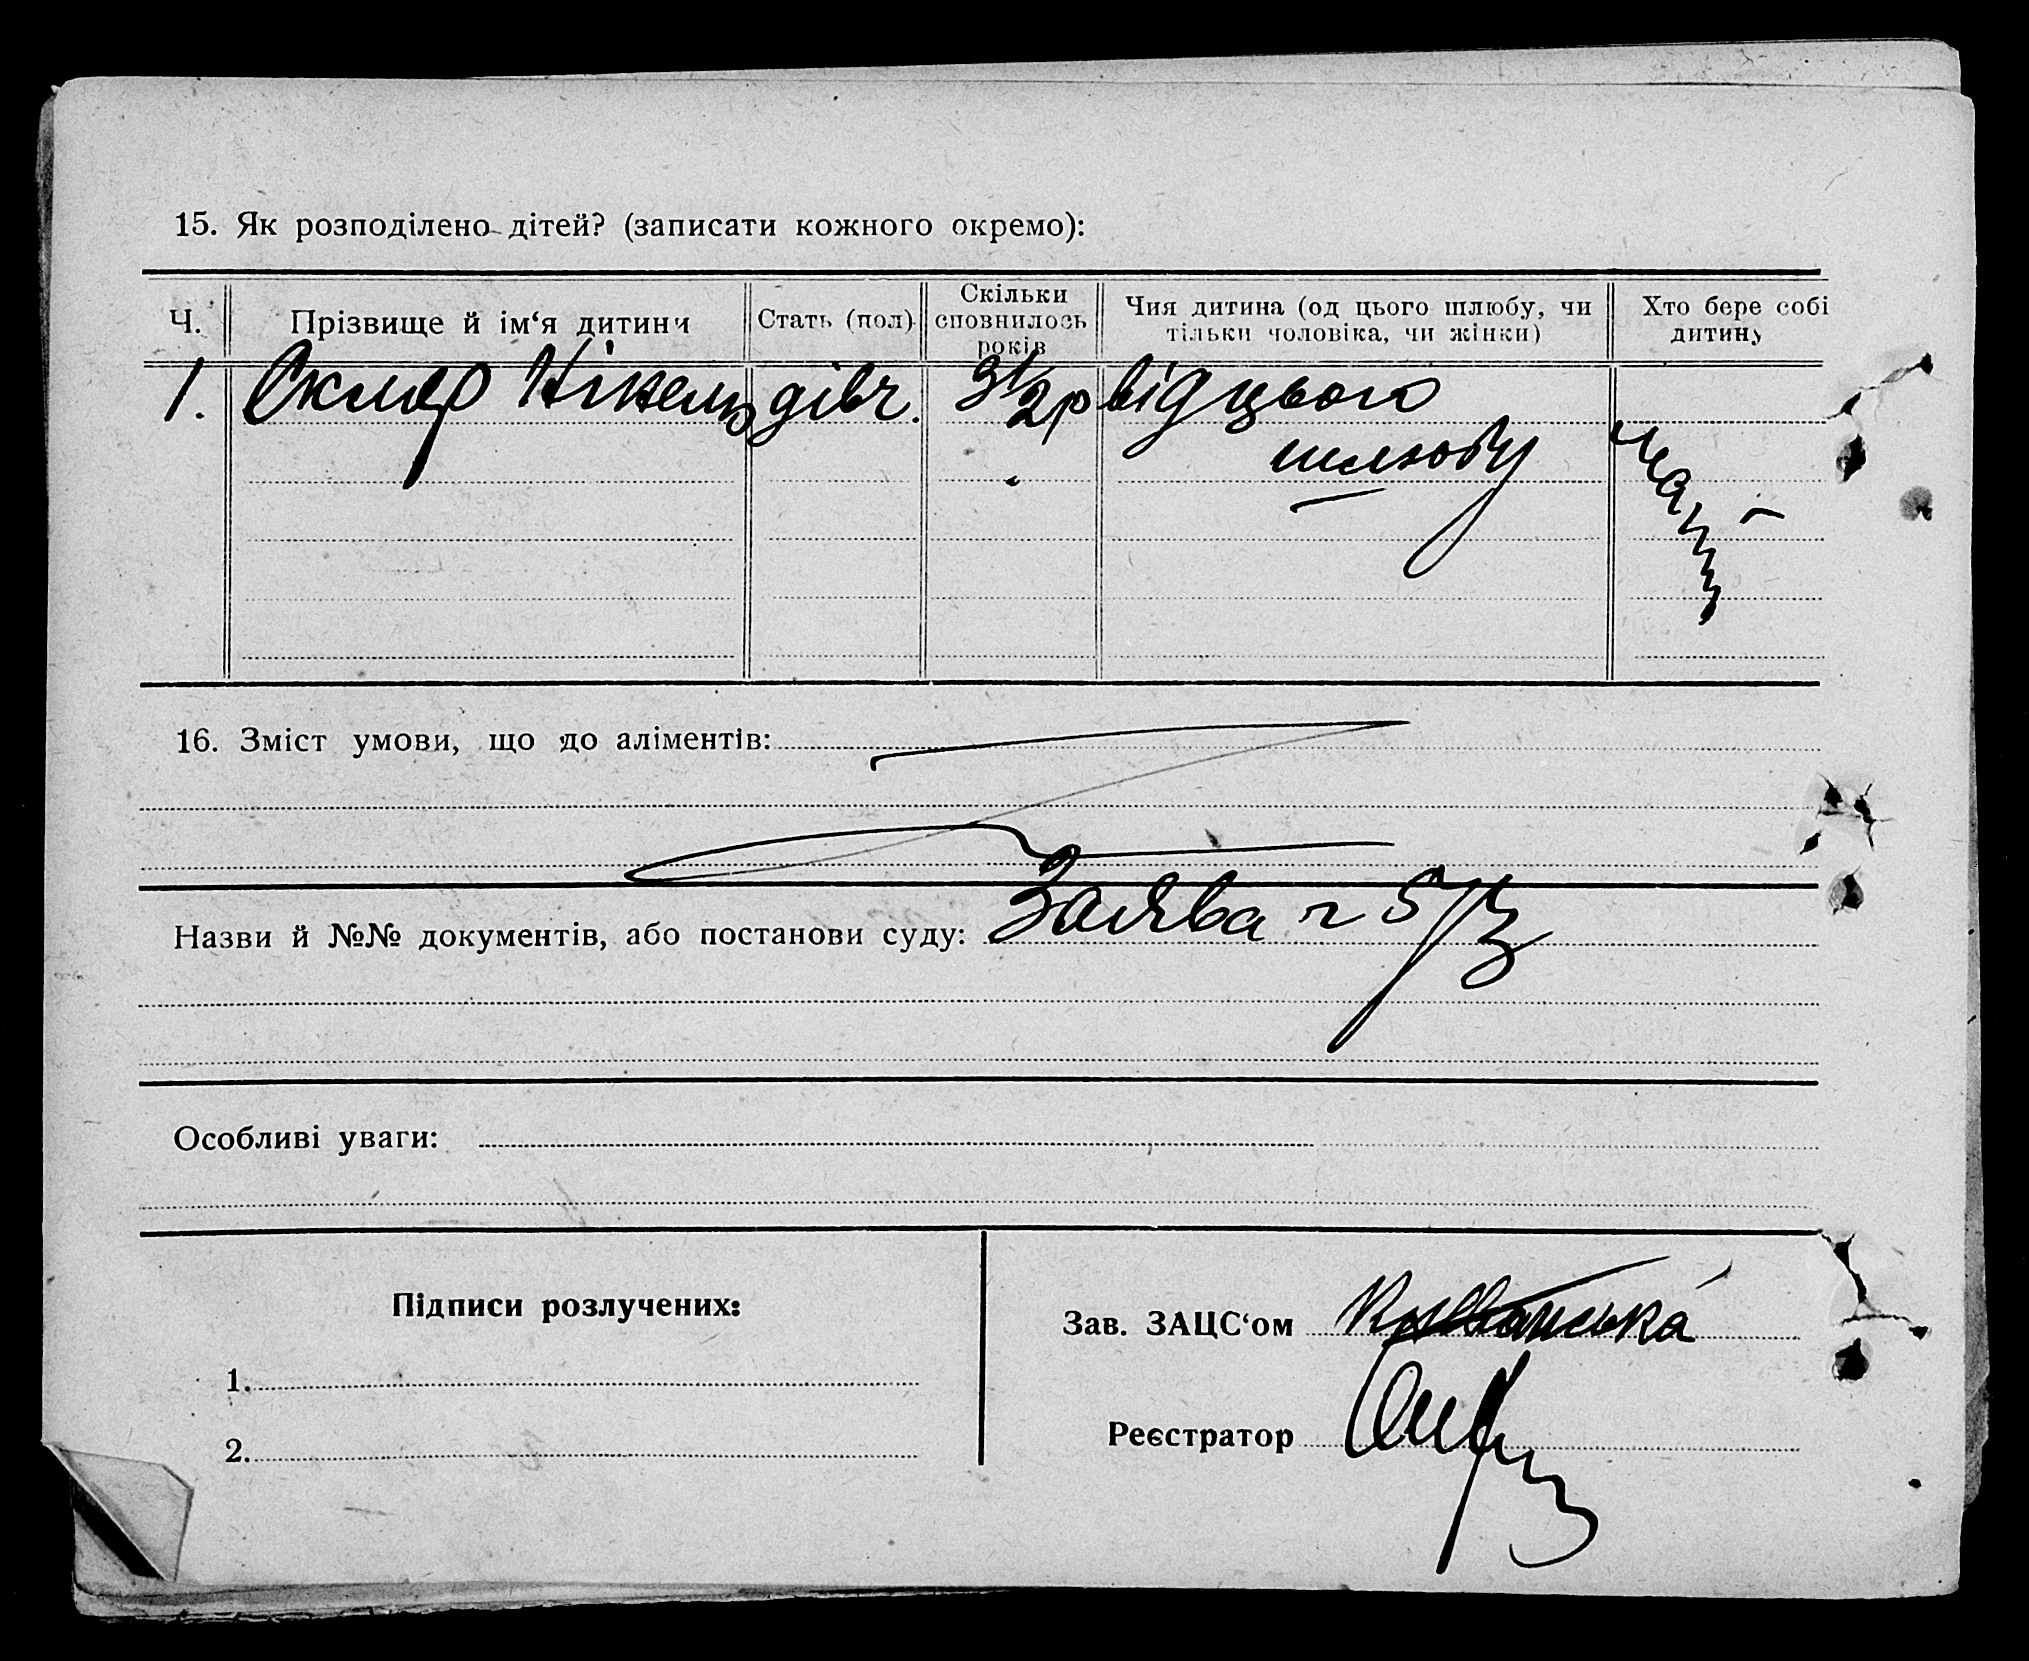 15. Як розподілено дітей? (записати кожного окремо):
Ч. Прізвище й ім‘я дитини Стать (пол) Скільки сповнилось років Чия дитина (од цього шлюбу, чи тільки чоловіка, чи жінки) Хто бере собі дитину
1. Скляр дівч. від цього
шлюбу
16. Зміст умови, що до аліментів:
Назви й №№ документів, або постанови суду: Заява
Особливі уваги:
Підписи розлучених:
1.
2.
Зав. ЗАЦС‘ом
Реєстратор